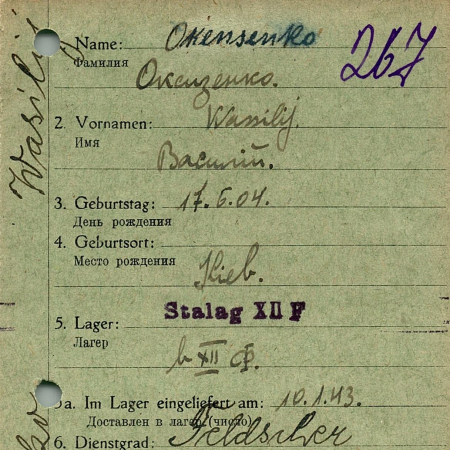 Wasilij
267
Name: Okensenko
Фамилия
Оксизенко.
2. Vornamen: Wassilij.
Имя
Василий.
3. Geburtstag: 17.6.04.
День рождения
4. Geburtsort:
Место рождения
Kieb.
Stalag XII F
5. Lager:
Лагерь
b XII Ф.
a. Im Lager eingeliefert am: 10.1.43.
Доставлен в лагерь (число)
6. Dienstgrad: Feldscher